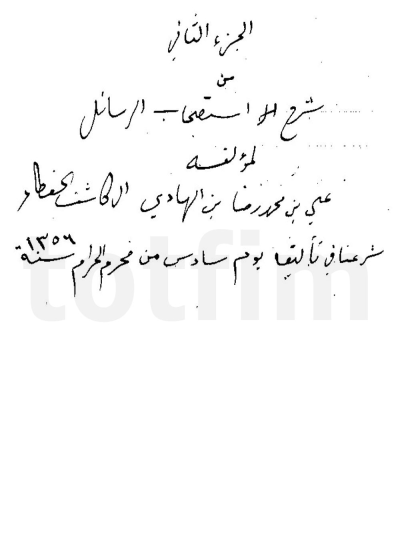 الجزء الثاني
من
شرح الاستصحاب الرسائل
لمؤلفه
علي بن محمد رضا بن الهادي الكاشف الغطاء
شرعنا في تأليفه يوم سادس من محرم الحرام سنة ١٣٥٦
totfim